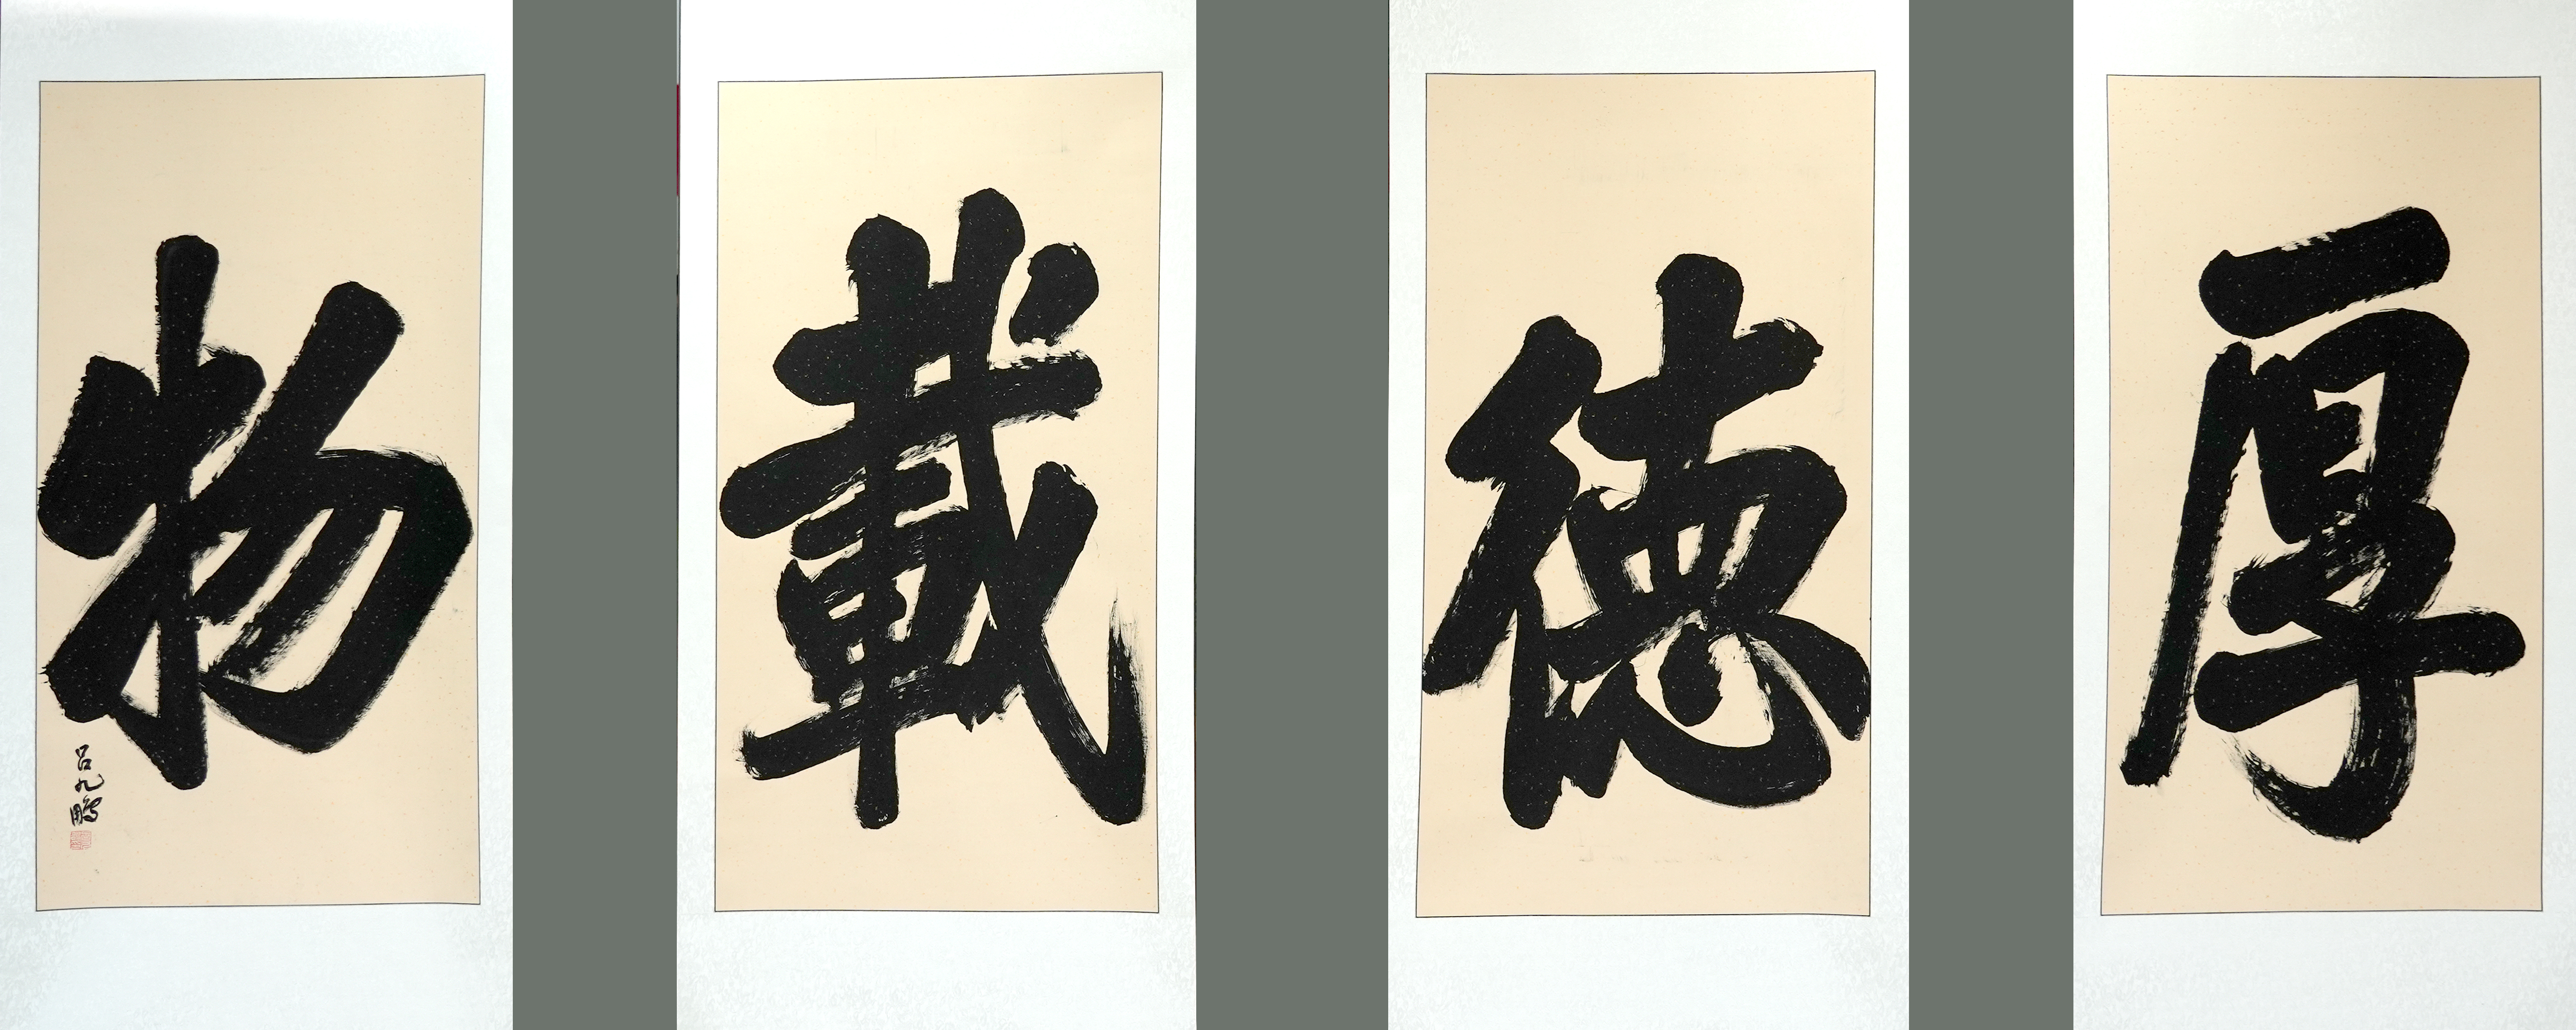 厚
德
載
物
吕九鵬